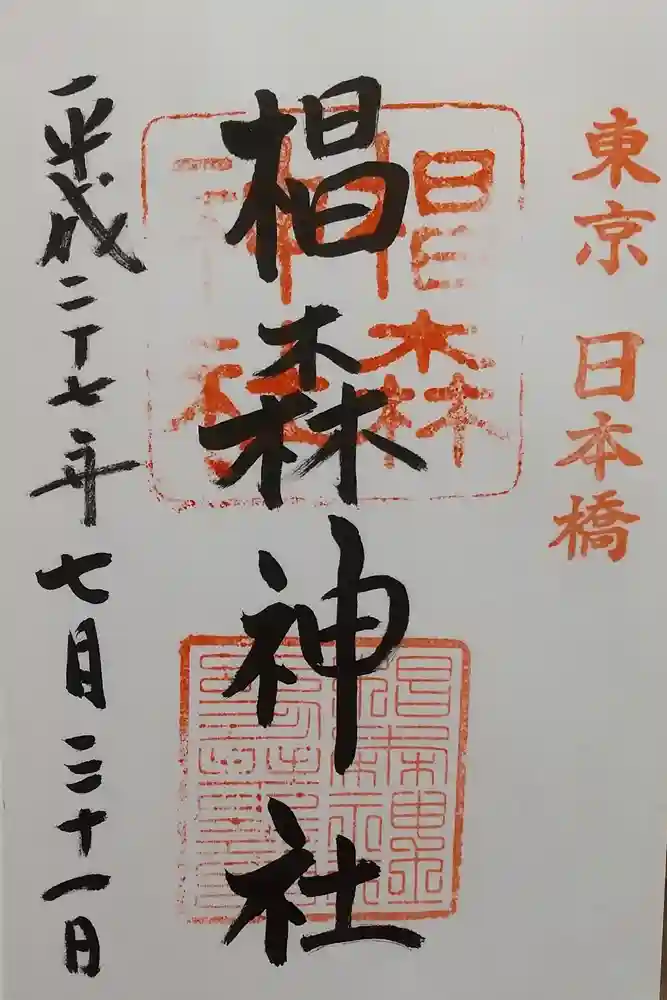 東京 日本橋
椙森神社
椙森
神社
平成二十七年七月三十一日